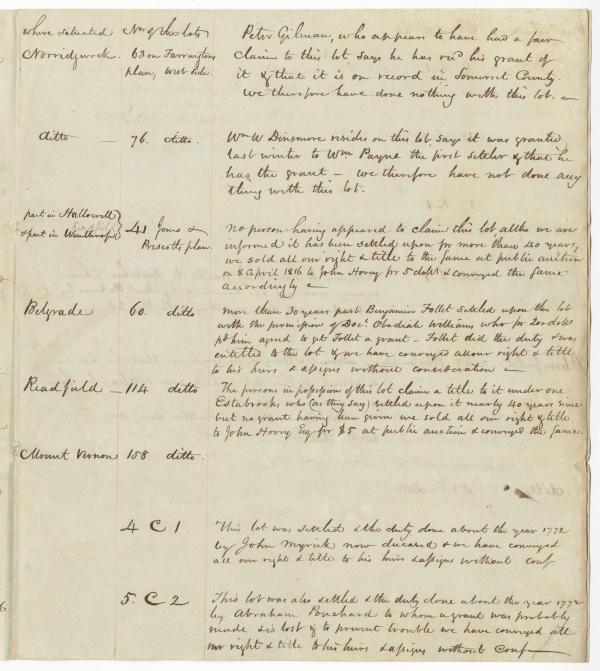 where situated Nos of the lots
Norridgwock. 63 on Farringtons
plan, West Side.
Peter Gilman, who appears to have had a fair
claim to this lot, says he has recd his grant of
it & that it is on record in Somerset County.
We therefore have done nothing with this lot. —
ditto — 76. ditto.
Wm W Dinsmore resides on this lot, says it was granted
last winter to Wm Payne the first settler & that he
has the grant — we therefore have not done any
thing with this lot.
part in Hallowell
& part in Winthrop} 41. Jones &
Prescotts plan.
no person having appeared to claim this lot, altho we are
informed it has been settled upon for more than 40 years,
we sold all our right & title to the same at public auction
on 8 April 1816 to John Hovey for 5 dolls & conveyed the same
accordingly —
Belgrade 60. ditto
more than 30 years past Benjamin Follet settled upon this lot
with the permission of Docr. Obadiah Williams who for 200 dolls
pd him agreed to get Follet a grant — Follet did the duty & was
entitled to the lot & we have conveyed all our right & title
to his heirs & assigns without consideration —
Readfield — 114 ditto
The persons in possession of this lot claim a title to it under one
Estabrooks, who (as they say) settled upon it nearly 40 years since
but no grant having been given we sold all our right & title
to John Hovey Esq for $5 at public auction & conveyed the same.
Mount Vernon 158 ditto.
4 C 1
This lot was settled & the duty done about the year 1772
by John Myrick now deceased & we have conveyed
all our right & title to his heirs & assigns without conſ
5. C 2
This lot was also settled & the duty done about the year 1772
by Abraham Pouchard to whom a grant was probably
made & is lost & to prevent trouble we have conveyed all
our right & title to his heirs & assigns without Conſ —